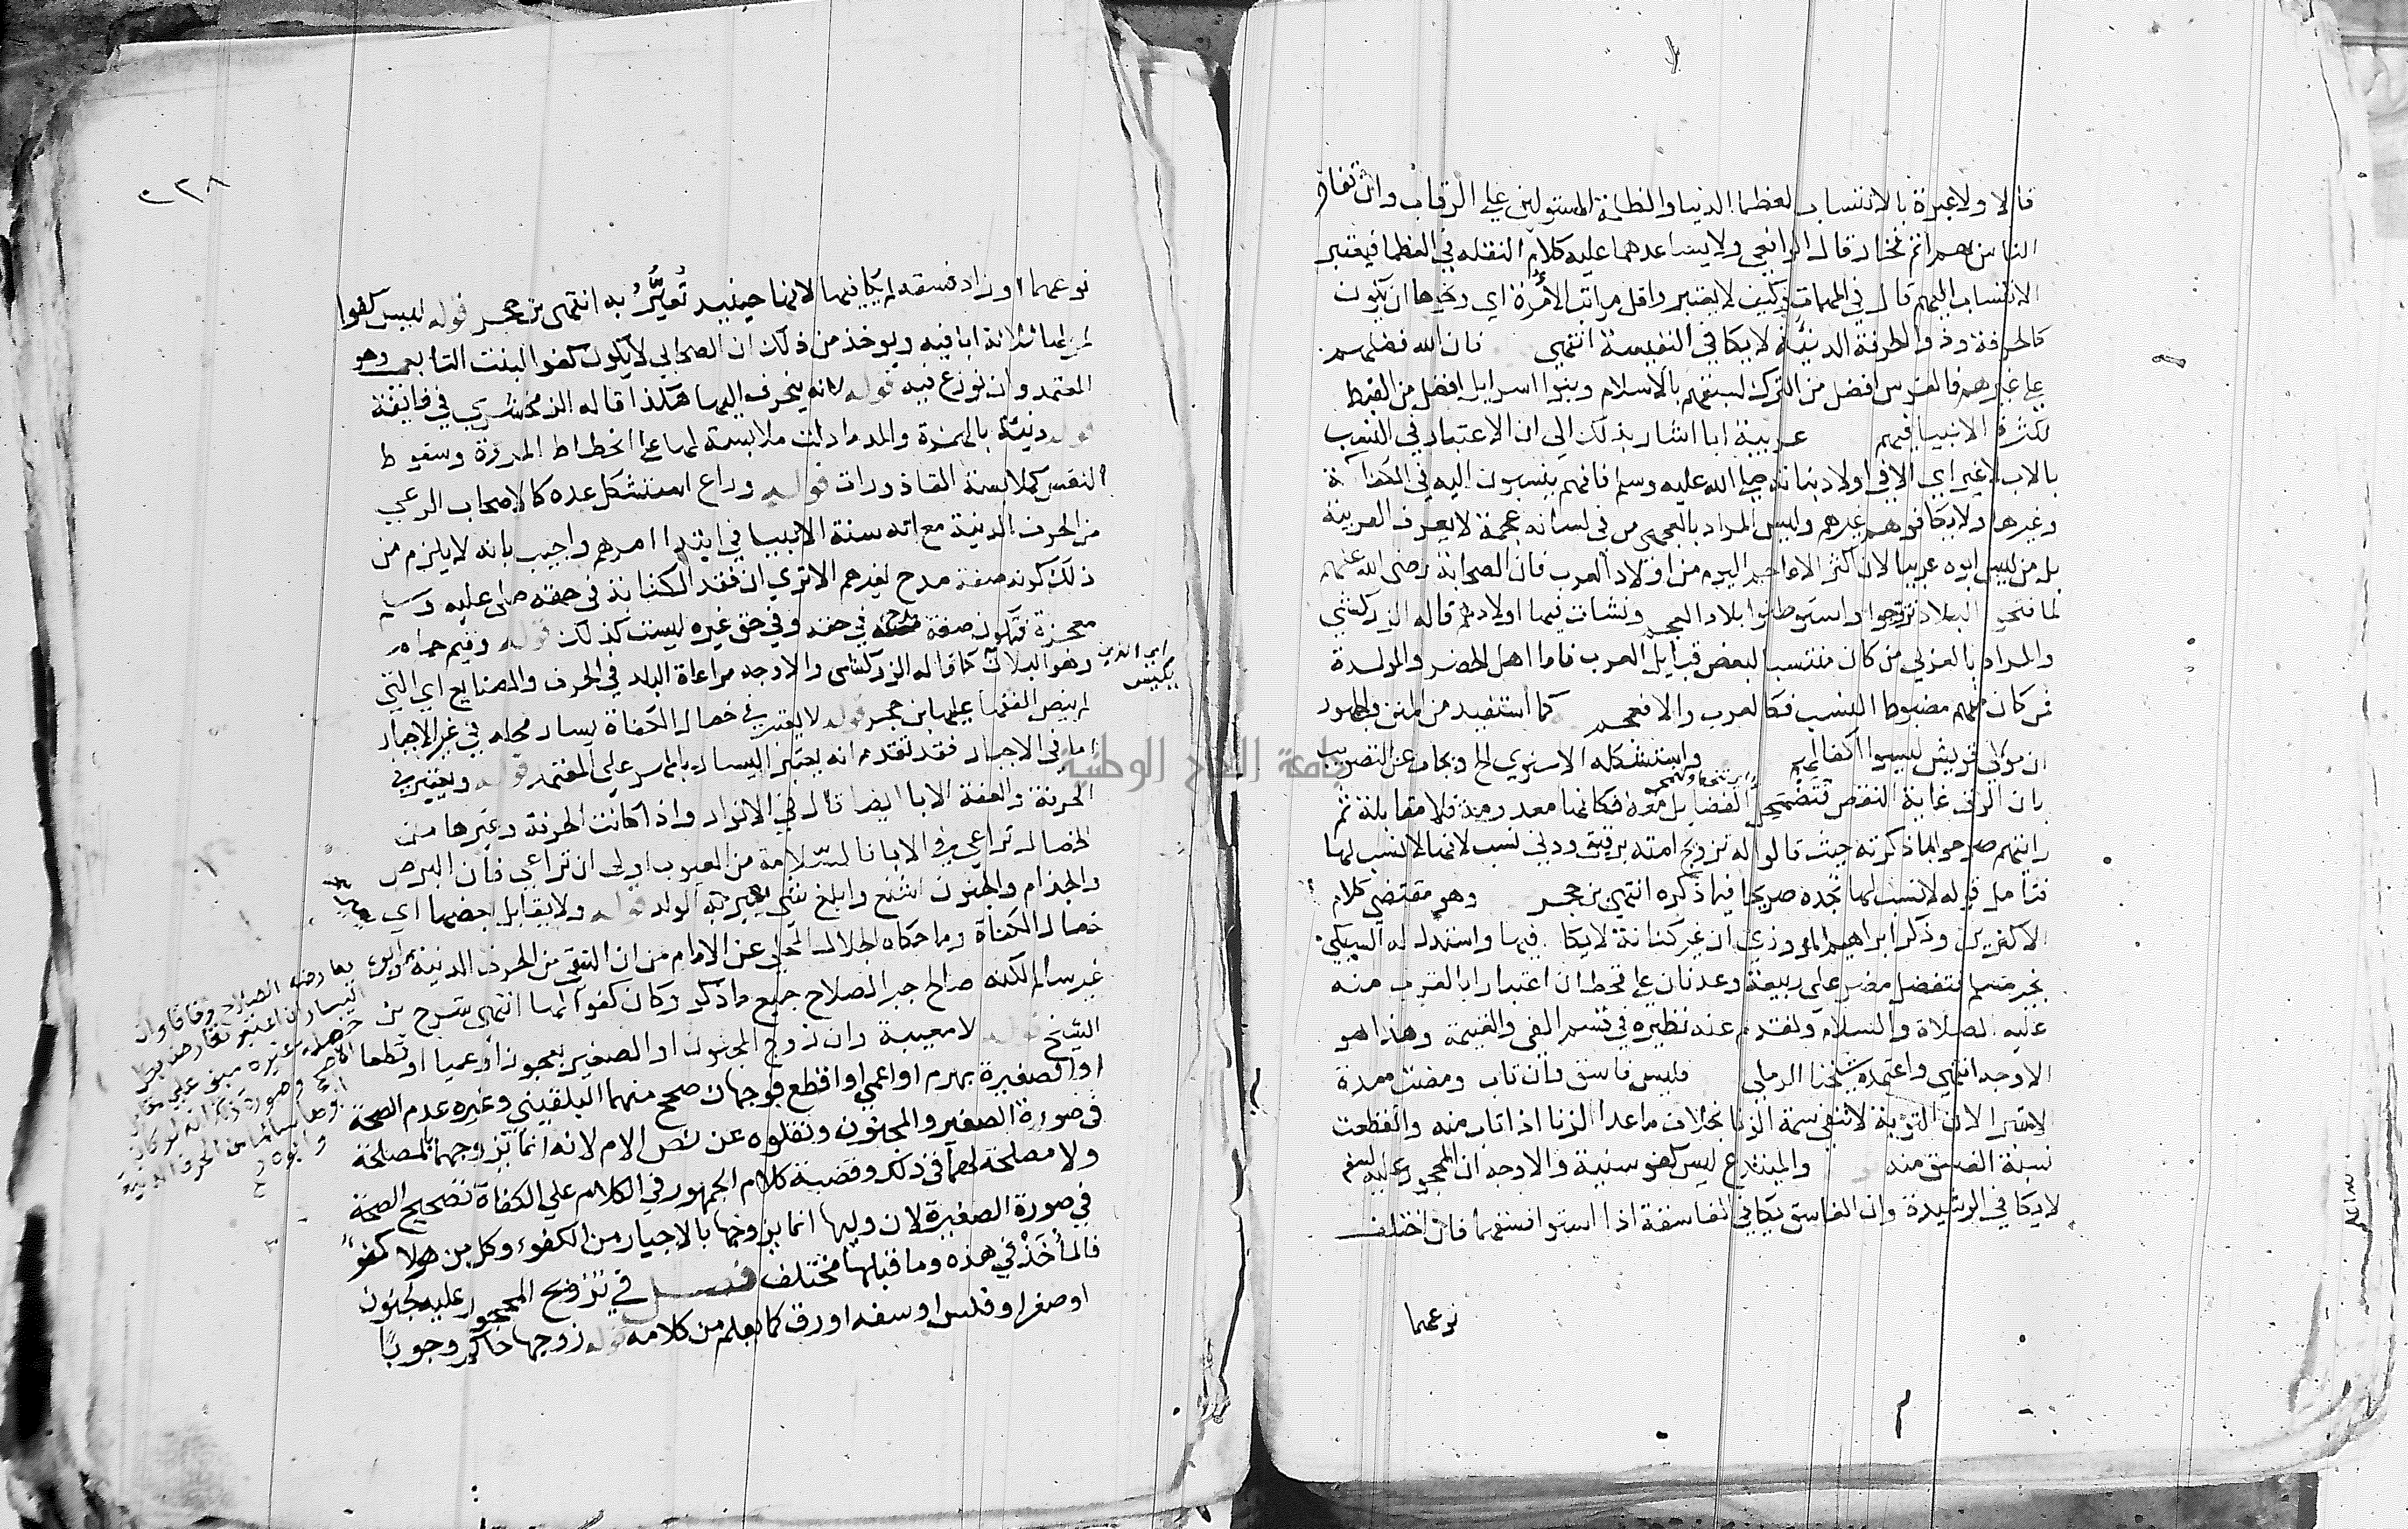 قالا ولا عبرة بالانتساب لعظما الدنيا والظلمة المستولين على الرقاب وان تفاخر
الناس بهم اتم فخار قال الرافعي ولا يساعدهما عليه كلام النقله في العظما فيعتبر
الانتساب اليهم قال في المهمات وكيف لا يعتبر واقل مراتب الأمرة اي ونحوها ان يكون
كالحرفة وذو الحرفة الدنيئة لا يكافي النفيسة انتهى فان الله فضلهم
على غيرهم فالفرس افضل من الترك لسبقهم بالاسلام وبنوا اسرايل افضل من القبط
لكثرة الانبيا فيهم عربية ابا اشار بذلك الي ان الاعتبار في النسب
بالاب لا غير اي الا في اولاد بناته صلى الله عليه وسلم فانهم ينسبون اليه في الكفاءة
وغيرها ولا يكافوهم غيرهم وليس المراد بالعجمي من في لسانه عجمة لا يعرف العربية
بل من ليس ابوه عربيا لان اكثر الاعاجم اليوم من اولاد العرب فان الصحابة رضى الله عنهم
لما فتحوا البلاد تزوجوا واستوطنوا بلاد العجم ونشات فيها اولادهم قاله الزركشي
والمراد بالعربي من كان منتسبا لبعض قبايل العرب فاما اهل الحضر والمولدة
فمن كان منهم مضبوط النسب فكالعرب والا فعجم كما استفيد من المتن والجمهور
ان موالي قريش ليسوا اكفا لهم واستشكله الاسنوي الخ ويجاب عن التصويب
بان الرق غاية النقص فتضمحل الفضايل معه فكانها معدومة فلا مقابلة ثم
رايتهم صرحوا بما ذكرته حيث قالوا له تزويج امته برقيق ودني نسب لانها لا نسب لها
فتأمل قوله لا نسب لها تجده صريحا فيما ذكره انتهى بن حجر وهو مقتضي كلام
الاكثرين وذكر ابراهيم المروذي ان غير كنانة لا يكا فيها واستدل له السبكي
بخبر مسلم فتفضل مضر على ربيعة وعدنان على قحطان اعتبارا بالقرب منه
عليه الصلاة والسلام وتقدم عنه نظيره في قسم الفي والغنيمة وهذا هو
الاوجه انتهي واعتمده شيخنا الرملي فليس فاسق وان تاب ومضت مدة
الاستبرا لان التوبة لا تنفي سمة الزنا بخلاف ماعدا الزنا اذا تاب منه وانقطعت
نسبة الفسق منه والمبتدع ليس كفو سنية والاوجه ان المحجور عليه لسفه
لا يكافي الرشيدة وان الفاسق يكافي الفاسقة اذا استوا فسقهما فان اختلف
نوعهما
٢٣٨
نوعهما او زاد فسقه لم يكافيها لانها حينيد تُعيَّرُ به انتهى بن حجر قوله ليس كفوا
لمن لها ثلاثة ابا فيه ويوخذ من ذلك ان الصحابي لا يكون كفوا لبنت التابعي وهو
المعتمد وان نوزع فيه قوله لانه ينحرف اليها هكذا قاله الزمخشري في فائقه
قوله دنيئة بالهمزة والمد مادلت ملابسته لها على انحطاط المروة وسقوط
النفس كملابسة القاذورات قوله وراع استشكل عده كالاصحاب الرعي
من الحرف الدنية مع انه سنة الانبيا في ابتدا امرهم واجيب بانه لا يلزم من
ذلك كونه صفة مدح لغيرهم الا تري ان فقد الكتابة في حقه صلى عليه وسلم
معجزة فتكون صفة مدح في حقه وفي حق غيره ليست كذلك قوله وقيم حمام
وهو البلان كما قاله الزركشي والاوجه مراعاة البلد في الحرف والصنايع اي التي
لم ينص الفقها عليها بن حجر قوله لا يعتبر في خصال الكفاة يسار محله في غير الاجبار
اما في الاجبار فقد تقدم انه يعتبر اليسار بالمهر على المعتمد قوله ويعتبر في
الحرفة والعفة الابا ايضا قال في الانوار واذا كانت الحرفة وغيرها من
الخصال تراعي في الابا فالسّلامة من العيوب اولى ان تراعي فان البرص
والجذام والجنون اشنع وابلغ في تعيير الولد قوله ولا يقابل بعضها اي
خصال الكفاة وما حكاه الجلال المحلي عن الامام من ان التنقي من الحرف الدنية
غير سالم لكنه صالح جبر الصلاح جميع ما ذكر وكان كفوا لها انتهى شرح
الشيخ قوله لا معيبة وان زوج المجنون او الصغير بعجوز او عميا او قطعا
او الصغيرة بهرم او اعمي او اقطع فوجهان صحح منهما البلقيني وغيره عدم الصحة
في صورة الصغير والمجنون ونقلوه عن نص الام لانه انما تزوجهما للمصلحة
ولا مصلحة لهما في ذلك وقضية كلام الجمهور في الكلام علي الكفاة تصحيح الصحة
في صورة الصغيرة لان وليها انما يزوجها بالاجبار من الكفوء وكل من هولا كفوٌ
فالمأخَذْ في هذه وما قبلها مختلف فصل في تزويج المحجور عليه لجنون
او صغر او فلس او سفه او رق كما يعلم من كلامه قوله زوجها حاكم وجوبًا
جامعة النجاح الوطنية